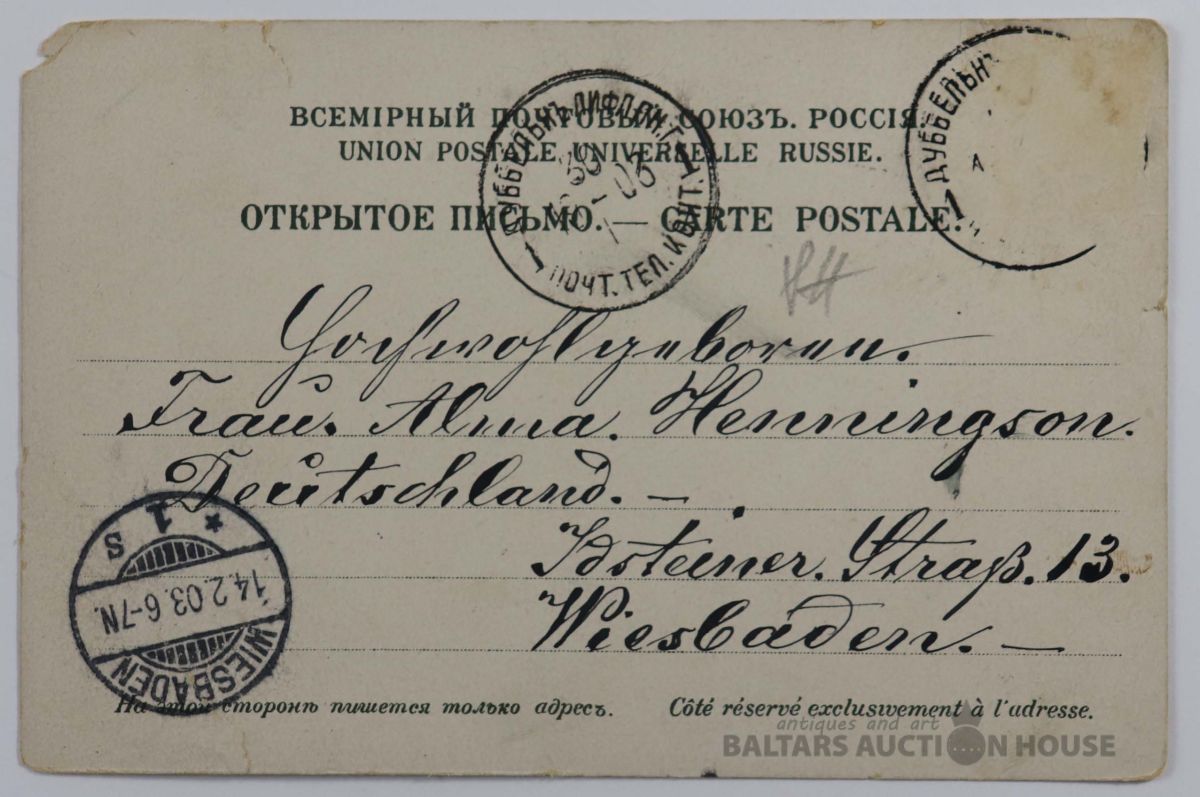 ВСЕМІРНЫЙ ПОЧТОВЫЙ СОЮЗЪ. РОССІЯ.
UNION POSTALE UNIVERSELLE RUSSIE.
ОТКРЫТОЕ ПИСЬМО. — CARTE POSTALE.
ДУББЕЛЬНЪ ЛИФЛЯН. Г.
03
1
ПОЧТ. ТЕЛ. КОНТ.
ДУББЕЛЬНЪ
1
Hochwohlgeboren.
Frau. Alma. Henningson.
Deutschland. —
Idsteiner. Straß. 13.
Wiesbaden. —
WIESBADEN
14.2.03. 6-7N.
* 1 S
На этой сторонѣ пишется только адресъ. Côté réservé exclusivement à l'adresse.
antiques and art
BALTARS AUCTION HOUSE